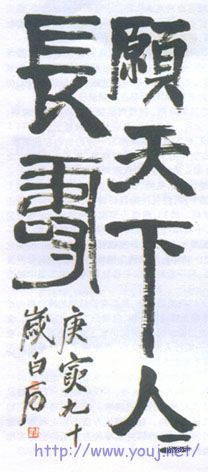 願天下人〻
長壽
庚寅九十
歲白石
http://www.youj.net/